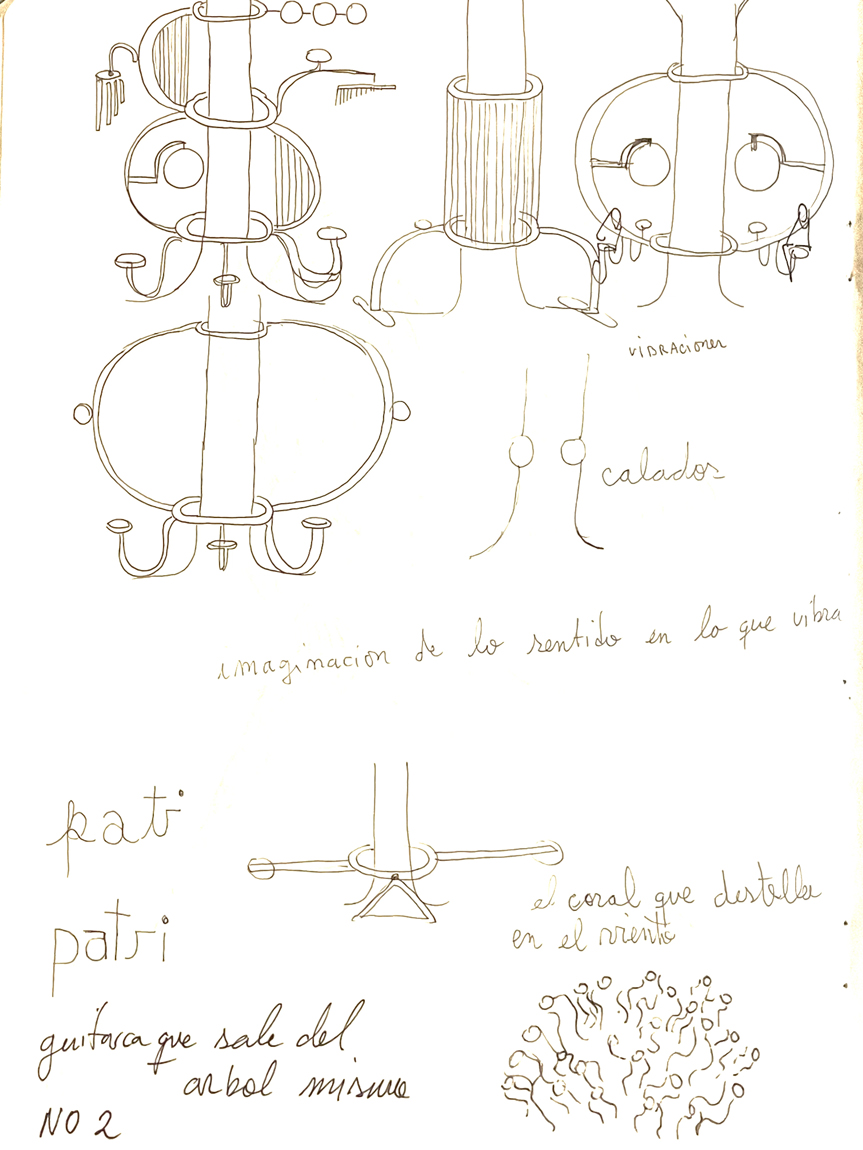 VIBRAciones
calados
imaginacion de lo sentido en lo que vibra
pati
patri
el coral que destella
en el viento
guitarra que sale del
arbol mismo
NO 2